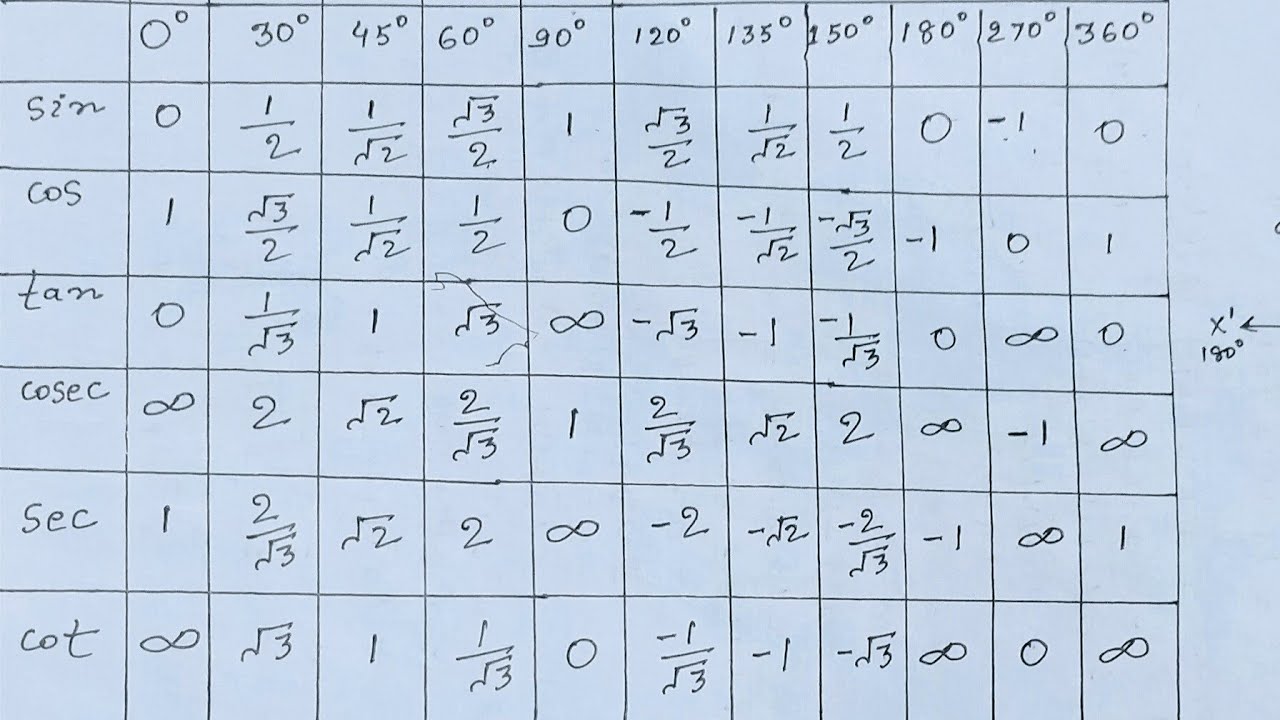 0° 30° 45° 60° 90° 120° 135° 150° 180° 270° 360°
sin 0 1/2 1/√2 √3/2 1 √3/2 1/√2 1/2 0 -1 0
cos 1 √3/2 1/√2 1/2 0 -1/2 -1/√2 -√3/2 -1 0 1
tan 0 1/√3 1 √3 ∞ -√3 -1 -1/√3 0 ∞ 0
cosec ∞ 2 √2 2/√3 1 2/√3 √2 2 ∞ -1 ∞
sec 1 2/√3 √2 2 ∞ -2 -√2 -2/√3 -1 ∞ 1
cot ∞ √3 1 1/√3 0 -1/√3 -1 -√3 ∞ 0 ∞
X'
180°